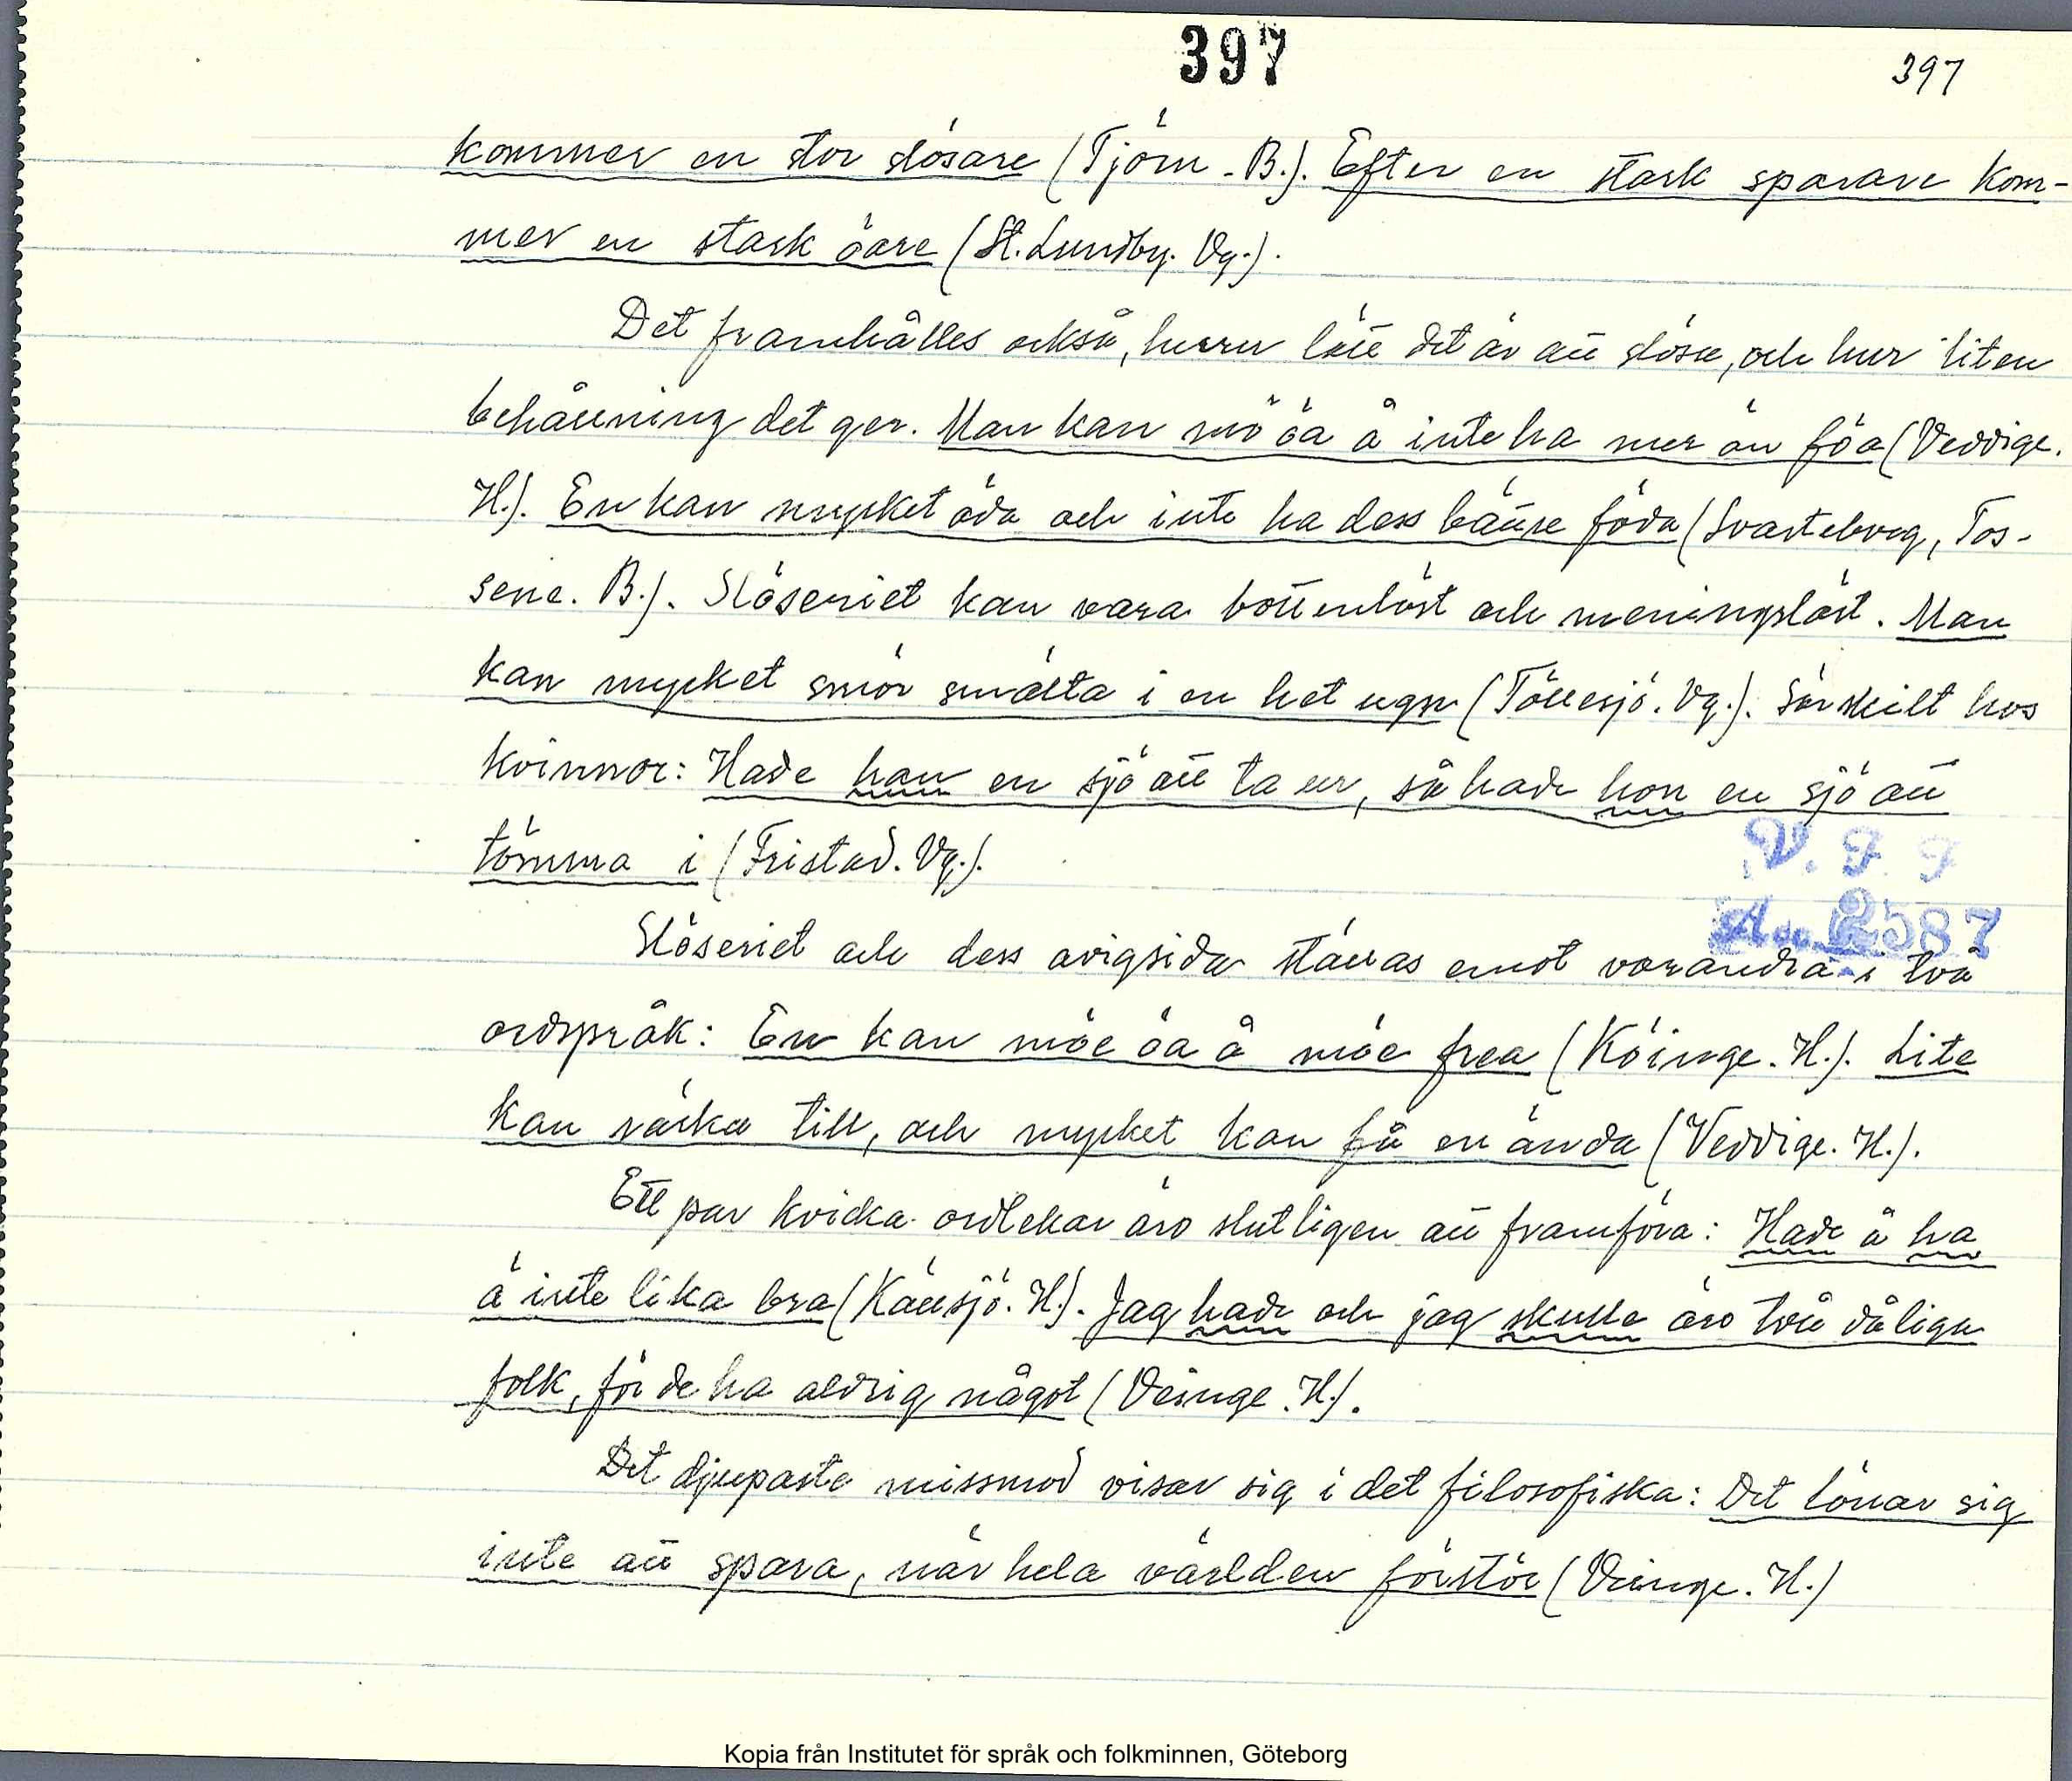 397
397
kommer en stor slösare (Tjörn. B.). Efter en stark sparare kom-
mer en stark öare (St. Lundby. Vg.).
Det framhålles också, huru lätt det är att slösa, och hur liten
behållning det ger. Man kan mö öa å inte ha mer än föa (Veddige.
H.). En kan mycket öda och inte ha dess bättre föda (Svarteborg, Tos-
sene. B.). Slöseriet kan vara bottenlöst och meningslöst. Man
kan mycket smör smälta i en het ugn (Töllesjö. Vg.). Särskilt hos
kvinnor: Hade han en sjö att ta ur, så hade hon en sjö att
tömma i (Fristad. Vg.).
V. F. F
Acc. 2587
Slöseriet och dess avigsida ställas emot varandra i två
ordspråk: En kan möe öa å möe frea (Köinge. H.). Lite
kan räcka till, och mycket kan få en ända (Veddige. H.).
Ett par kvicka ordlekar äro slutligen att framföra: Hade å ha
ä inte lika bra (Källsjö. H.). Jag hade och jag skulle äro två dåliga
folk, för de ha aldrig något (Veinge. H.).
Det djupaste missmod visar sig i det filosofiska: Det lönar sig
inte att spara, när hela världen förstör (Veinge. H.)
Kopia från Institutet för språk och folkminnen, Göteborg